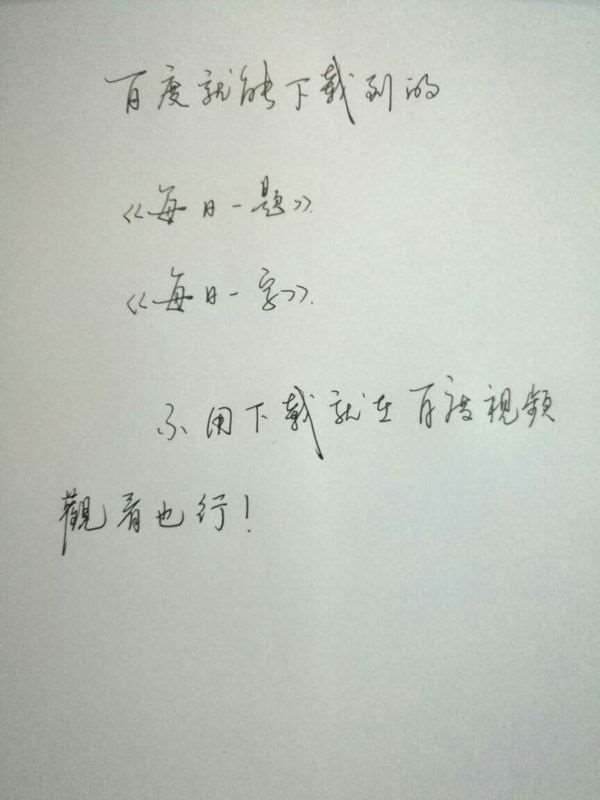 百度就能下载到的
《每日一题》
《每日一字》
不用下载就在百度视频
觀看也行！